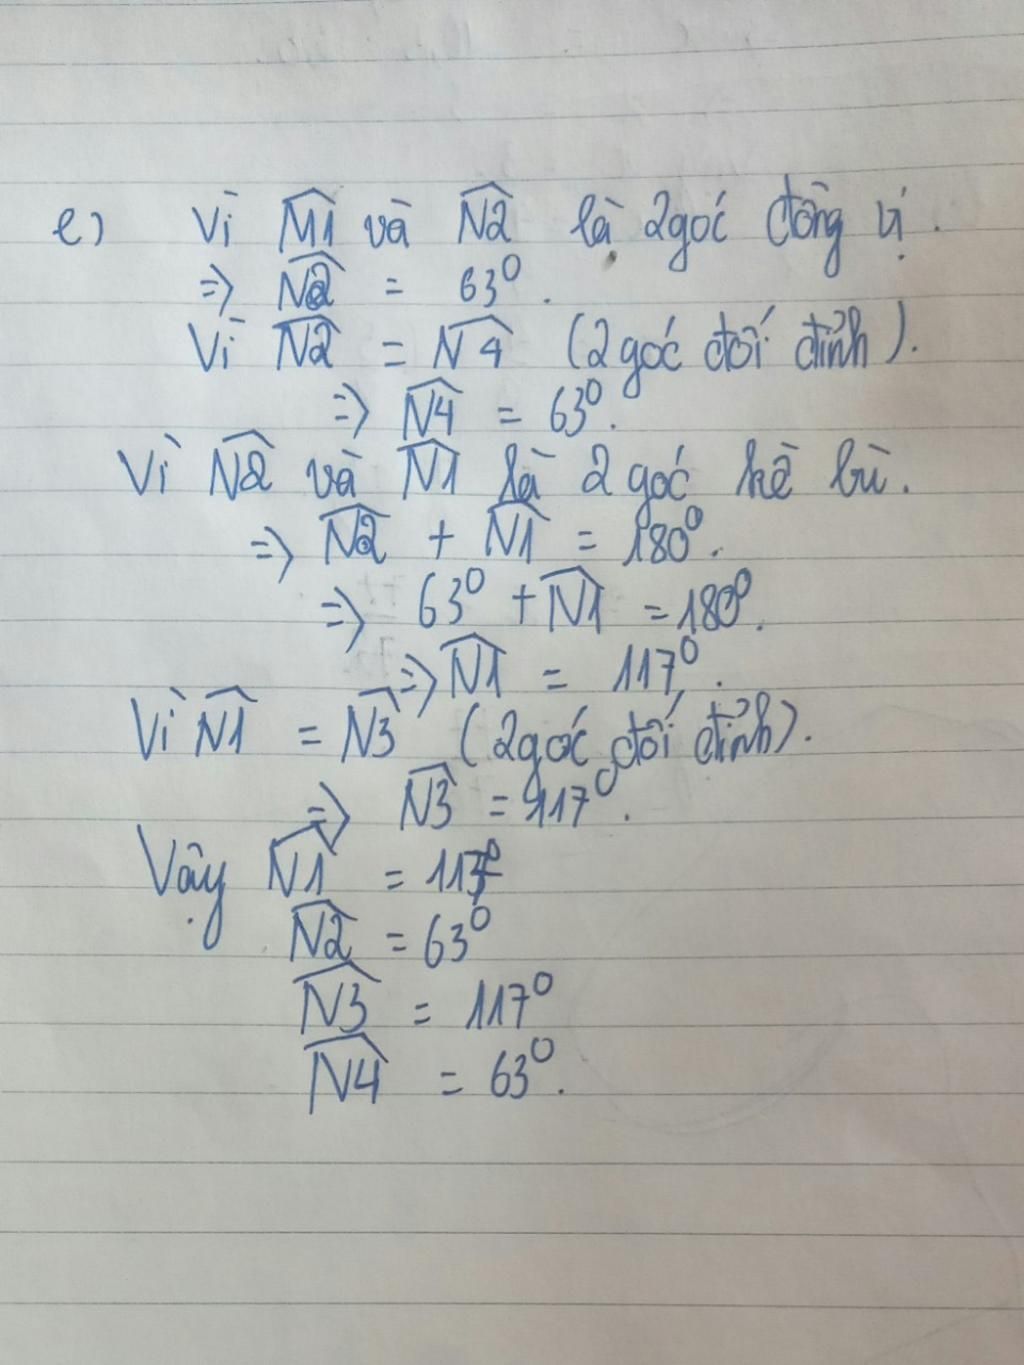 e) Vì M1 và N2 là 2 góc đồng vị.
=> N2 = 63⁰.
Vì N2 = N4 (2 góc đối đỉnh).
=> N4 = 63⁰.
Vì N2 và N1 là 2 góc kề bù.
=> N2 + N1 = 180⁰.
=> 63⁰ + N1 = 180⁰.
=> N1 = 117⁰.
Vì N1 = N3 (2 góc đối đỉnh).
=> N3 = 117⁰.
Vậy N1 = 117⁰
N2 = 63⁰
N3 = 117⁰
N4 = 63⁰.